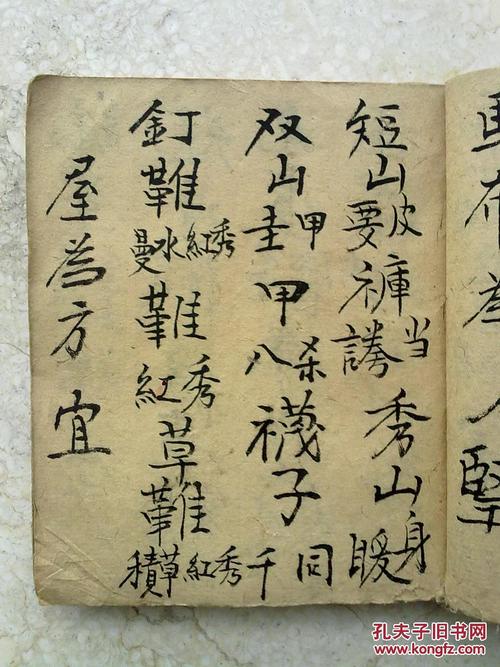 布
短山皮要褲当謗秀山身暖
双山甲圭甲杀八襪子同千
釘難秀紅水曼難秀紅草難秀紅草積
屋為方宜
孔夫子旧书网
www.kongfz.com